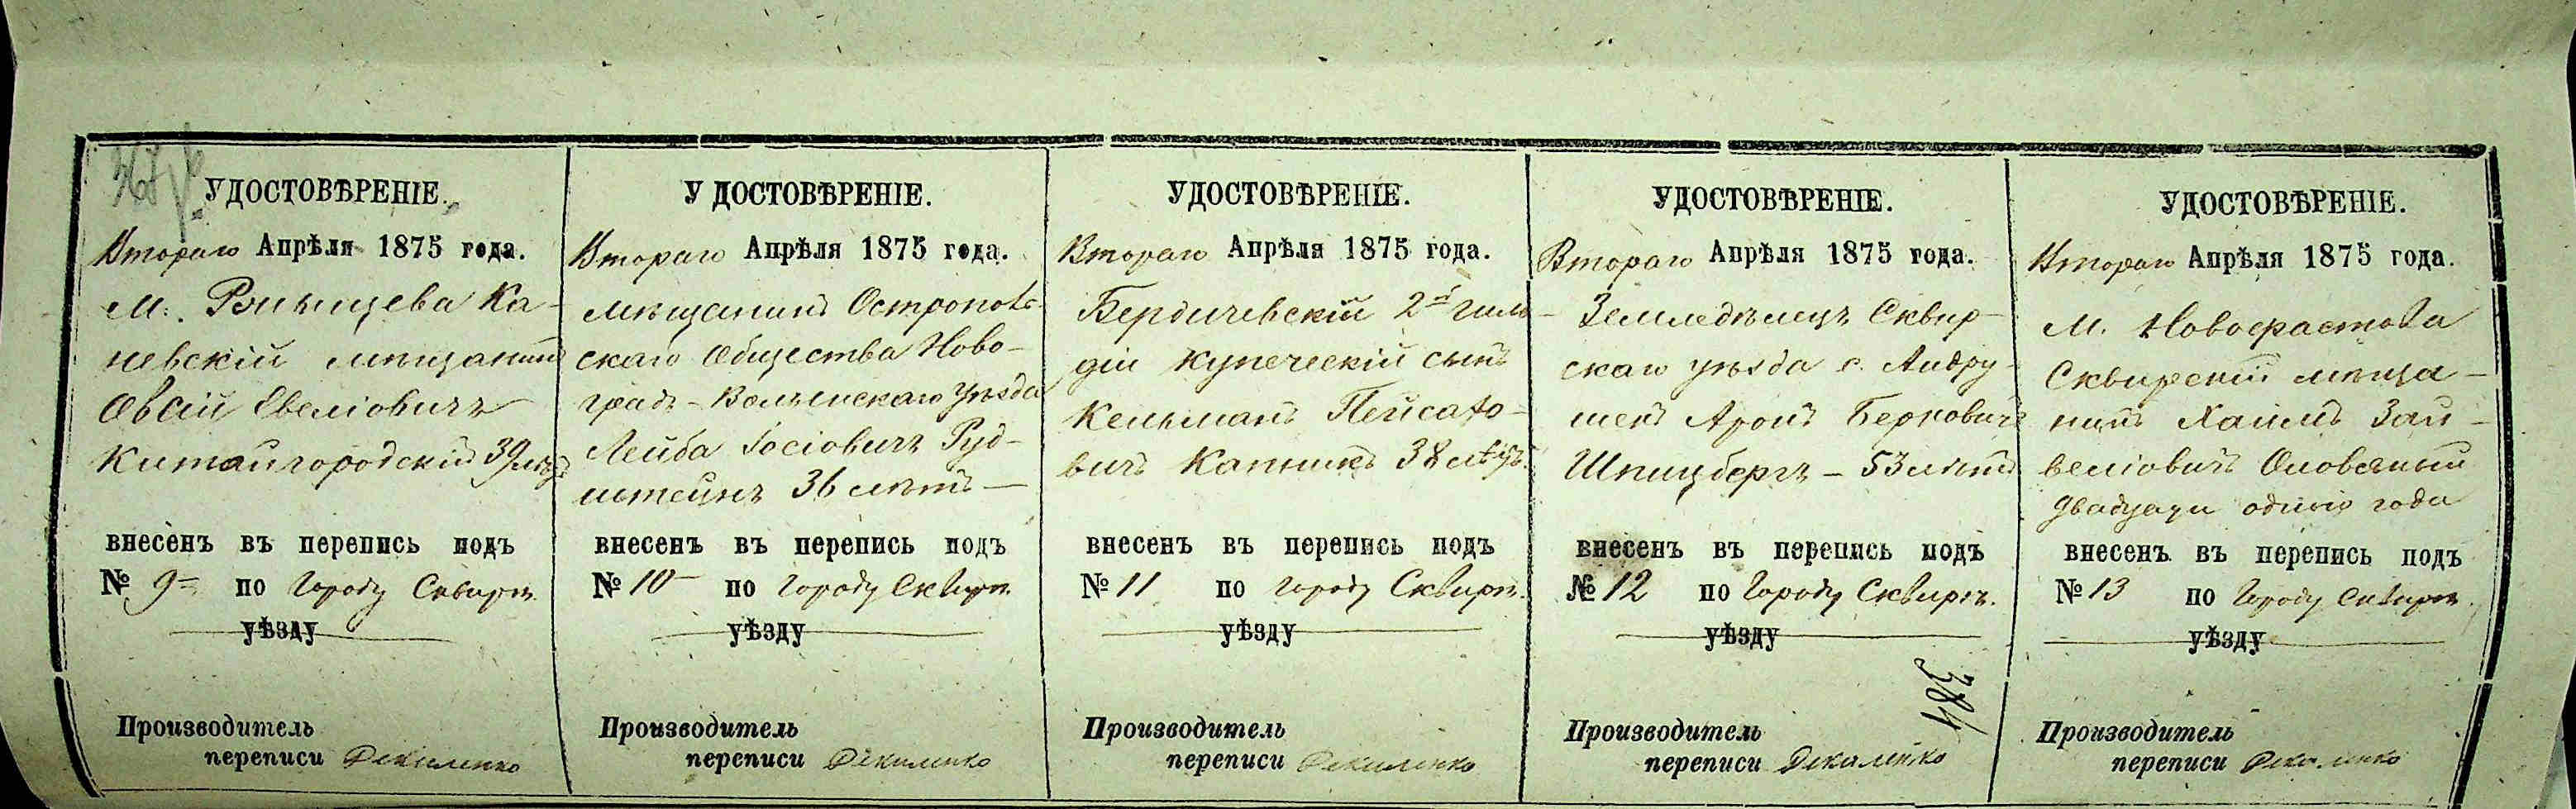 УДОСТОВѢРЕНІЕ.
Втораго Апрѣля 1875 года.
М. Ржищева Ка-
невскій мѣщанинъ
Овсій Евеліовичъ
Китайгородскій 39 лѣтъ
внесенъ въ перепись подъ
№ 9 по Городу Сквирѣ
уѣзду
Производитель
переписи
УДОСТОВѢРЕНІЕ.
Втораго Апрѣля 1875 года.
мѣщанинъ Острополь-
скаго Общества Ново-
градъ-Волынскаго Уѣзда
Лейба Іосіовичъ Руд-
штейнъ 36 лѣтъ —
внесенъ въ перепись подъ
№ 10 по Городу Сквирѣ
уѣзду
Производитель
переписи
УДОСТОВѢРЕНІЕ.
Втораго Апрѣля 1875 года.
Бердичевскій 2й гиль-
діи купеческій сынъ
Кельманъ Пейсахо-
вичъ Капникъ 38 лѣтъ.
внесенъ въ перепись подъ
№ 11 по Городу Сквирѣ.
уѣзду
Производитель
переписи
УДОСТОВѢРЕНІЕ.
Втораго Апрѣля 1875 года.
Земледѣлецъ Сквир-
скаго уѣзда с. Андру-
шекъ Аронъ Берковичъ
Шпицбергъ — 53 лѣтъ
внесенъ въ перепись подъ
№ 12 по Городу Сквирѣ.
уѣзду
384
Производитель
переписи
УДОСТОВѢРЕНІЕ.
Втораго Апрѣля 1875 года.
М. Новофастова
Сквирскій мѣща-
нинъ Хаимъ Зай-
веліовичъ Оловяный
двадцати одного года
внесенъ въ перепись подъ
№ 13 по Городу Сквирѣ.
уѣзду
Производитель
переписи